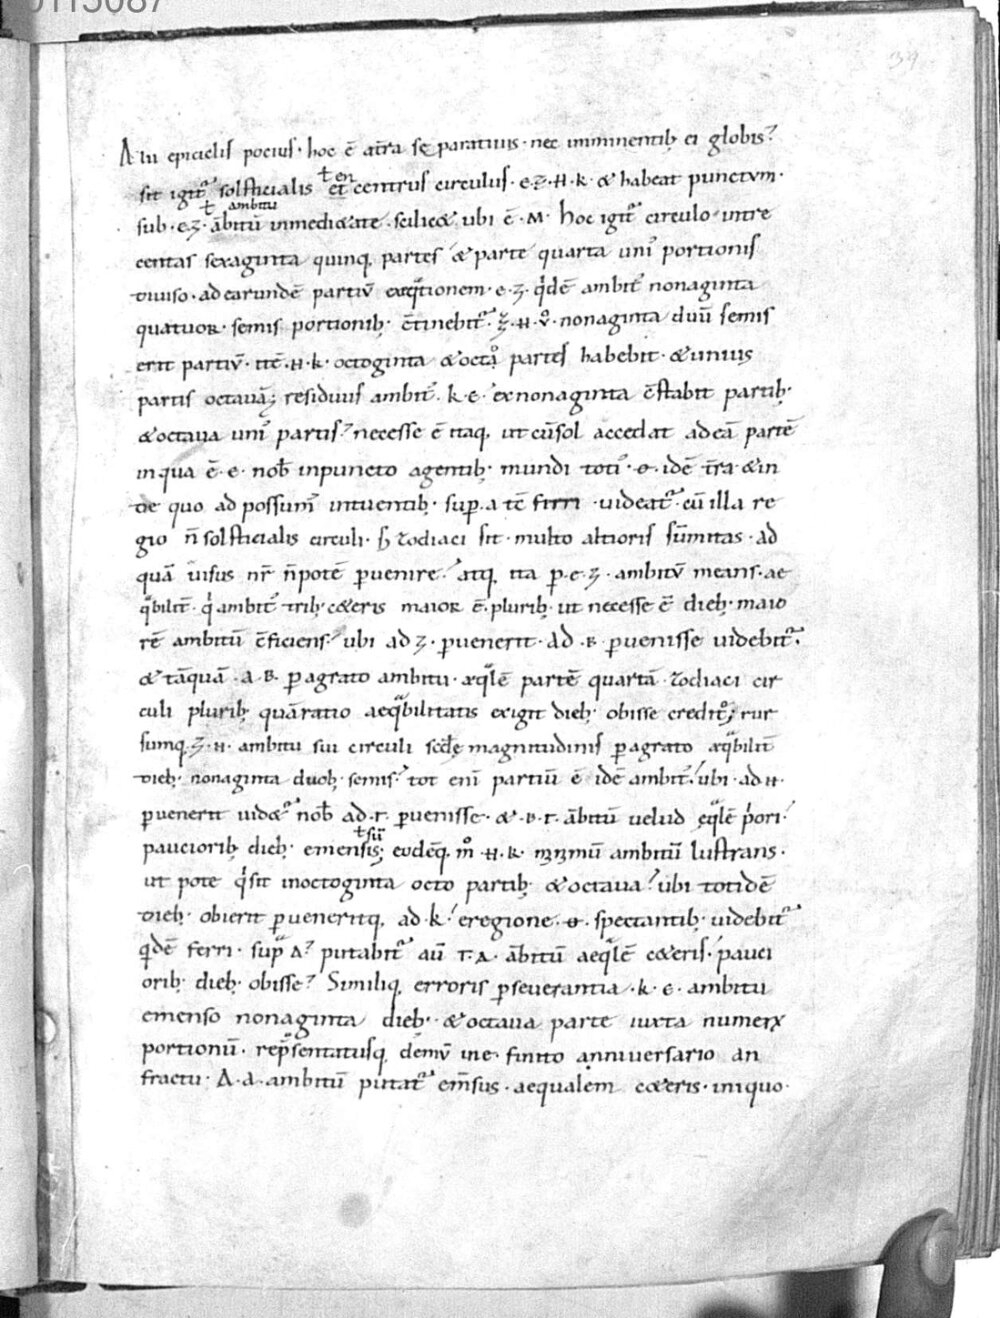 0115087
39
A lii epiciclis pocius · hoc ē at̄ra se paratiuis · nec imminentib; ei globis?
sit igit᷑ solsticialis ł en et centrus circulus · e · z · H · k · & habeat punctum ·
sub · e · z · ābitū ł ambitu inmedi&ate · scilic& ubi ē · M · hoc igit᷑ circulo intre
centas sexaginta quinq, partes & parte quarta uni' portionis
diuiso · ad earundē partiū exq̄tionem · e · z · qⁱdē ambit' nonaginta
quatuor · semis portionib; c̄tinebit᷑ · z · H · v° · nonaginta duū semis
erit partiū · itē · H · k · octoginta & octo partes habebit · & unius
partis octauā; residuus ambit' · k · e · ex nonaginta c̄stabit partib;
& octaua uni' partis? necesse ē itaq, ut cū sol accedat ad eā partē
in qua ē · e · nob̄ in puncto agentib; mundi toti' · ɵ · idē t̄ra · & in
de quo ad possum' intuentib; sup, a tē ferri · uideat᷑ · cū illa re
gio n̄ solsticialis circuli · s; zodiaci sit · multo altioris sūmitas · ad
quā uisus nr̄ n̄ potē puenire? atq, ita p · e · z · ambitū means · ae
qᵃbilit̄ · qⁱ ambit' trib; c&eris maior ē · plurib; ut necesse ē dieb; maio
rē ambitū c̄ficiens? ubi ad z · puenerit · ad · B · puenisse uidebit᷑ ·
& tāquā · a · B · pagrato ambitu · æqᵃlē partē quartā · zodiaci cir
culi plurib; quā ratio aeqᵃbilitatis exigit dieb; obisse credit᷑; rur
sumq, z · H · ambitu sui circuli scd̄ę magnitudinis pagrato æqᵃbilit̄
dieb; nonaginta duob; semis? tot eni partiū ē idē ambit'! ubi · ad H ·
puenerit uid&᷑ nob̄ ad · Γ · puenisse · & · B · Γ · ābitū uelud eqᵃlē pⁱori?
paucioriḅ dieb; emensis ł sū; eodēq, m° · H · K · ambitū lustrans ·
ut pote qⁱ sit in octoginta octo partib; & octaua? ubi totidē
dieb; obierit pueneritq, ad k? e regione · ɵ · spectantib; uidebit᷑
qⁱdē ferri · supᵃ Δ? putabit᷑ aū Γ · Δ · ābitū aeqᵃlē c&eris? pauci
orib; dieb; obisse? Similiq, erroris pseuerantia · k · e · ambitu
emenso nonaginta dieb; & octaua parte iuxta numerx
portionū · rep̄sentatusq, demū in e · finito anniuersario an
fractu · Δ · a · ambitū putat᷑ em̄sus · aequalem c&eris · iniquo ·